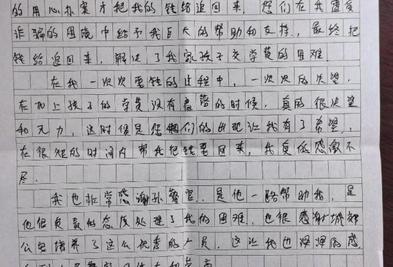 的用心办案才把我的钱给追回来,您们在我遭受
诈骗的困境中给予我巨大的帮助和支持,最终把
钱给追回来,解决了我家孩子交学费的困难。
在我一次次要钱的过程中,一次次的失望,
在加上孩子的学费没有着落的时候,真的很失望
和无力,这时候是您们的出现让我有了希望,
在很短的时间内帮我把钱要回来,我真纸感激不
尽。
我也非常感谢孙警官,是他一路帮助我,是
他认真负责的态度处理了我的困难,也很感谢城郊
公安培养了这么优秀的人员,这让我也深深的感